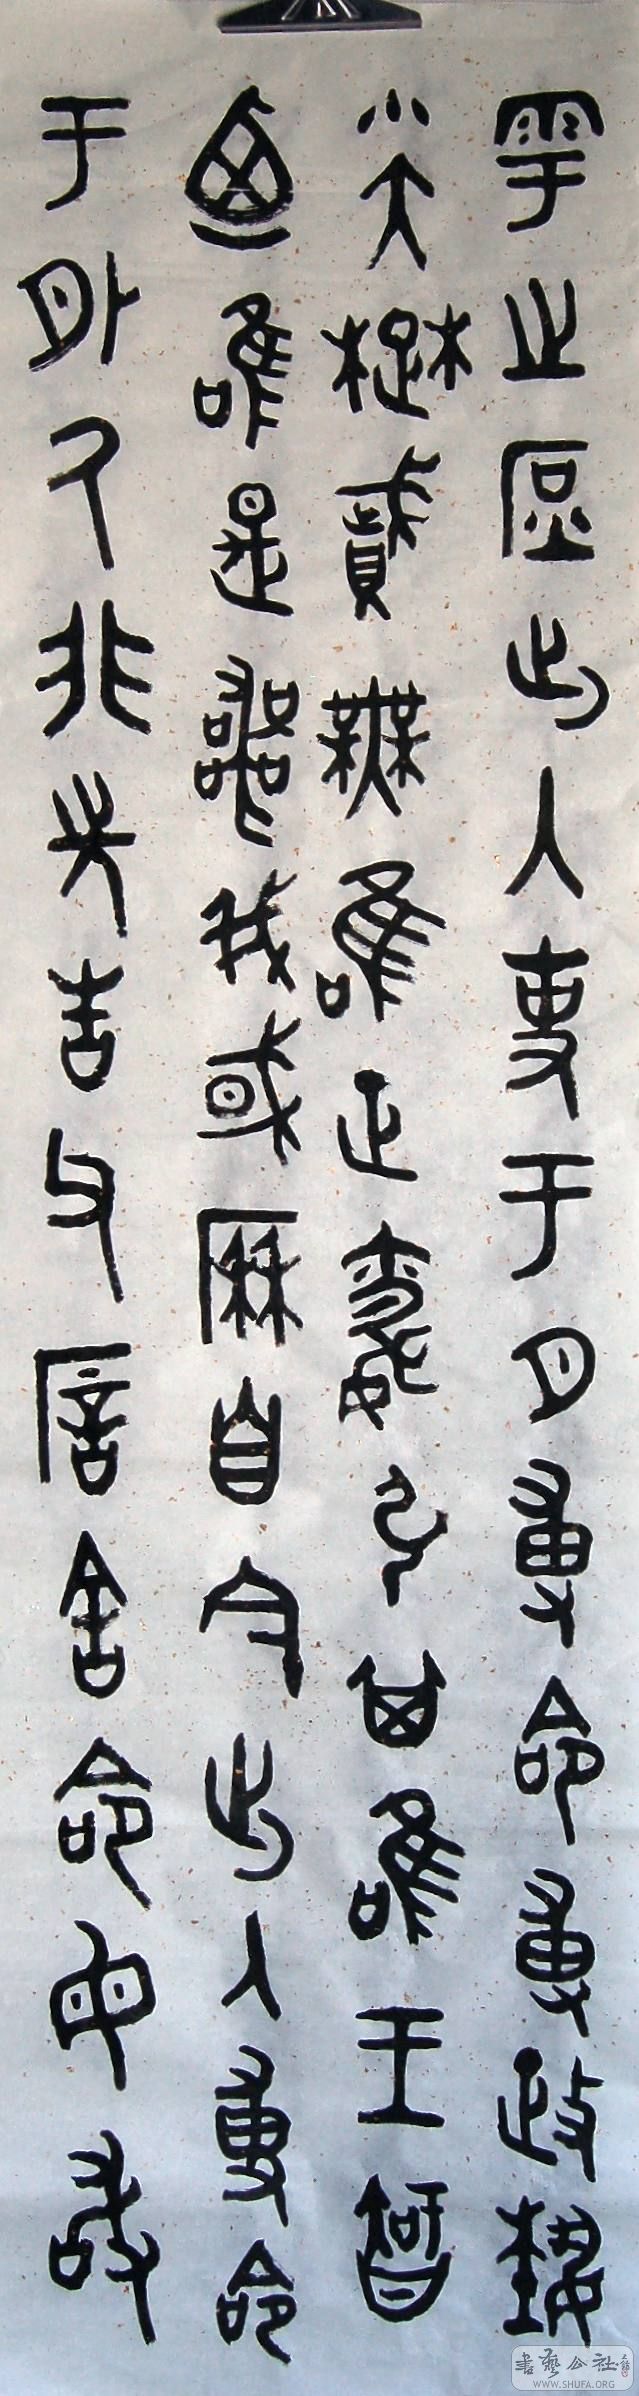 雩之庶出入事于外尃命尃政埶
小大楚賦無唯正昏引其唯王智
迺唯是喪我或歷自今出入尃命
于外氒非先告父厝舍命毋敢
書藝公社
WWW.SHUFA.ORG